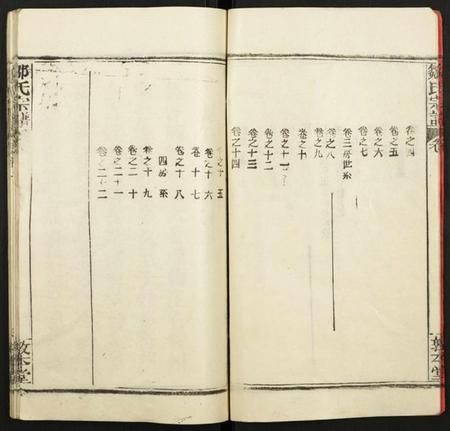 鄒氏宗譜 卷
卷之四
卷之五
卷之六
卷之七
卷三房世系
卷之八
卷之九
卷之十
卷之十一
卷之十二
卷之十三
卷之十四
敦本堂
卷之十五
卷之十六
卷十七
卷之十八
四房系
卷之十九
卷之二十
卷之二十一
卷之二十二
鄒氏宗譜
敦本堂